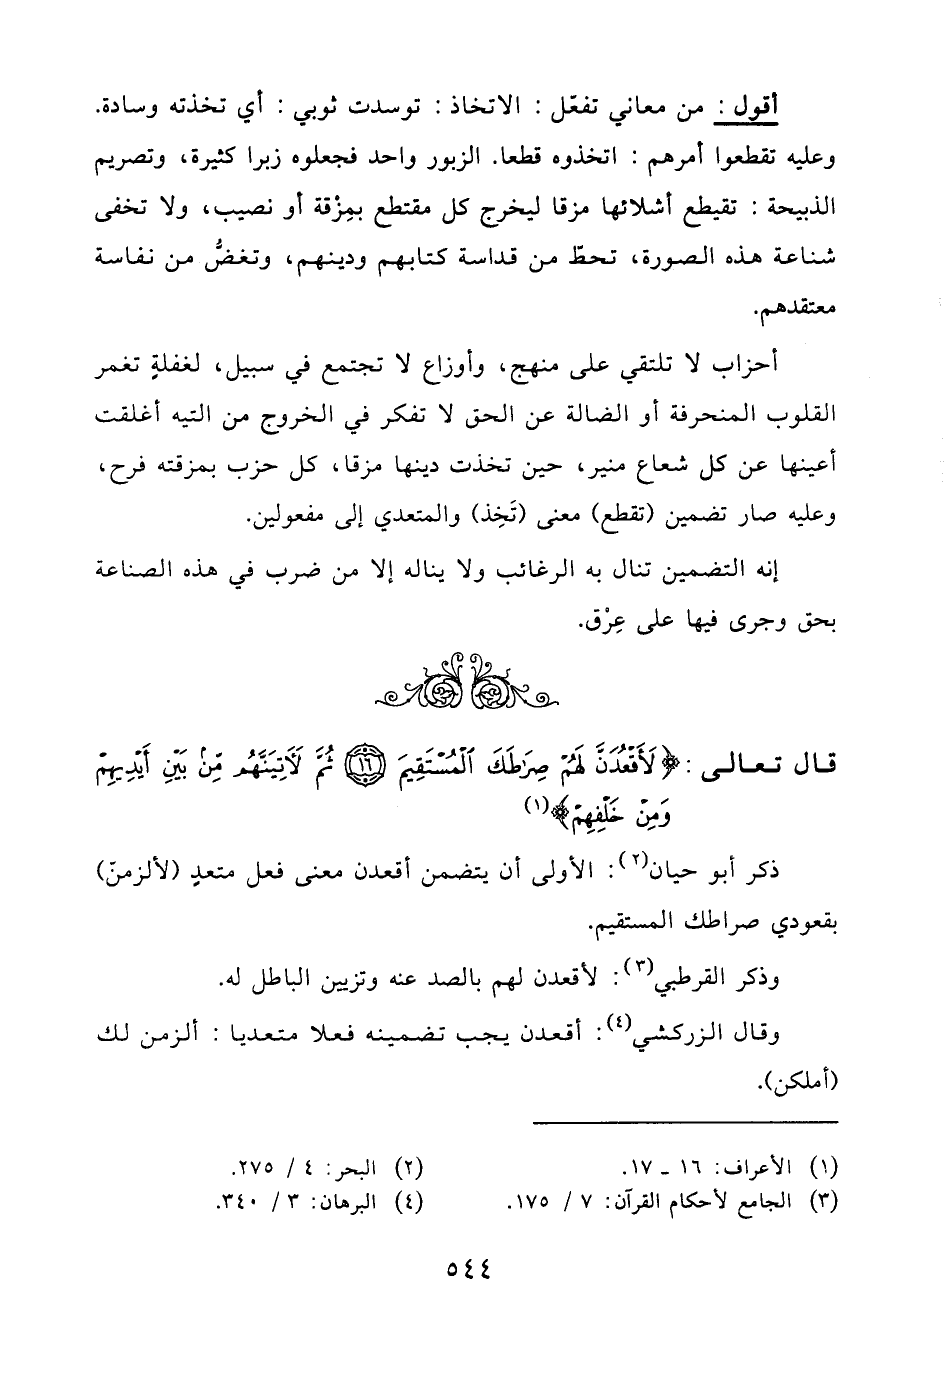 أقول : من معاني تفعّل : الاتخاذ : توسدت ثوبي : أي تخذته وسادة.
وعليه تقطعوا أمرهم : اتخذوه قطعا. الزبور واحد فجعلوه زبرا كثيرة، وتصريم
الذبيحة : تقيطع أشلائها مزقا ليخرج كل مقتطع بمِزْقة أو نصيب، ولا تخفى
شناعة هذه الصورة، تحطّ من قداسة كتابهم ودينهم، وتغضُّ من نفاسة
معتقدهم.
أحزاب لا تلتقي على منهج، وأوزاع لا تجتمع في سبيل، لغفلةٍ تغمر
القلوب المنحرفة أو الضالة عن الحق لا تفكر في الخروج من التيه أغلقت
أعينها عن كل شعاع منير، حين تخذت دينها مزقا، كل حزب بمزقته فرح،
وعليه صار تضمين (تقطع) معنى (تَخِذ) والمتعدي إلى مفعولين.
إنه التضمين تنال به الرغائب ولا يناله إلا من ضرب في هذه الصناعة
بحق وجرى فيها على عِرْق.
قال تعالى : ﴿لَأَقْعُدَنَّ لَهُمْ صِرَٰطَكَ ٱلْمُسْتَقِيمَ ١٦ ثُمَّ لَآتِيَنَّهُم مِّنۢ بَيْنِ أَيْدِيهِمْ
وَمِنْ خَلْفِهِمْ﴾(١)
ذكر أبو حيان(٢): الأولى أن يتضمن أقعدن معنى فعل متعدٍ (لألزمنّ)
بقعودي صراطك المستقيم.
وذكر القرطبي(٣): لأقعدن لهم بالصد عنه وتزيين الباطل له.
وقال الزركشي(٤): أقعدن يجب تضمينه فعلا متعديا : ألزمن لك
(أملكن).
(١) الأعراف: ١٦ ـ ١٧. (٢) البحر: ٤ / ٢٧٥.
(٣) الجامع لأحكام القرآن: ٧ / ١٧٥. (٤) البرهان: ٣ / ٣٤٠.
٥٤٤